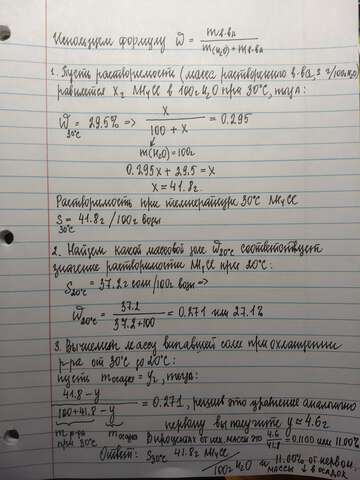 Используем формулу ω = m в-ва / m(H₂O) + m в-ва
1. Пусть растворимость (масса растворенного в-ва, г/100г H₂O)
равняется x г NH₄Cl в 100г H₂O при 30°C, тогда:
ω 30°C = 29.5% => x / 100 + x = 0.295
m(H₂O) = 100г
0.295x + 29.5 = x
x = 41.8г
Растворимость при температуре 30°C NH₄Cl
S 30°C = 41.8г / 100г воды
2. Найдем какой массовой доле ω 20°C соответствует
значение растворимости NH₄Cl при 20°C:
S 20°C = 37.2г соли/100г воды =>
ω 20°C = 37.2 / 37.2 + 100 = 0.271 или 27.1%
3. Вычислим массу выпавшей соли при охлаждении
р-ра от 30°C до 20°C:
пусть m осадка = y г, тогда:
41.8 - y / 100 + 41.8 - y = 0.271, решив это уравнение аналогично
первому вы получите y ≈ 4.6г
m р-ра при 30°C m осадка В процентах от исх. массы это 4.6 / 41.8 = 0.1100 или 11.00%
Ответ: S 30°C 41.8г NH₄Cl / 100г H₂O и 11.00% от первон. массы ↓ в осадок